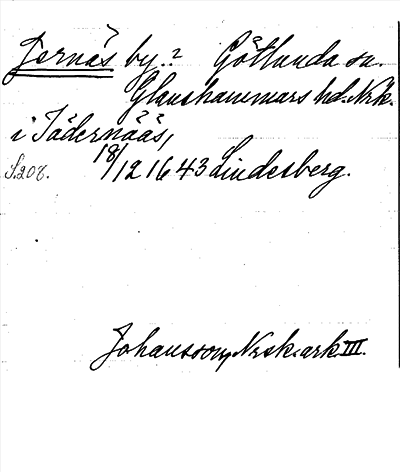 Jernäs by.? Götlunda sn.
Glanshammars hd. Nrk.
i Jädernääs,
S.208. 18/12 1643 Lindesberg.
Johansson, Nrsk. ark. III.